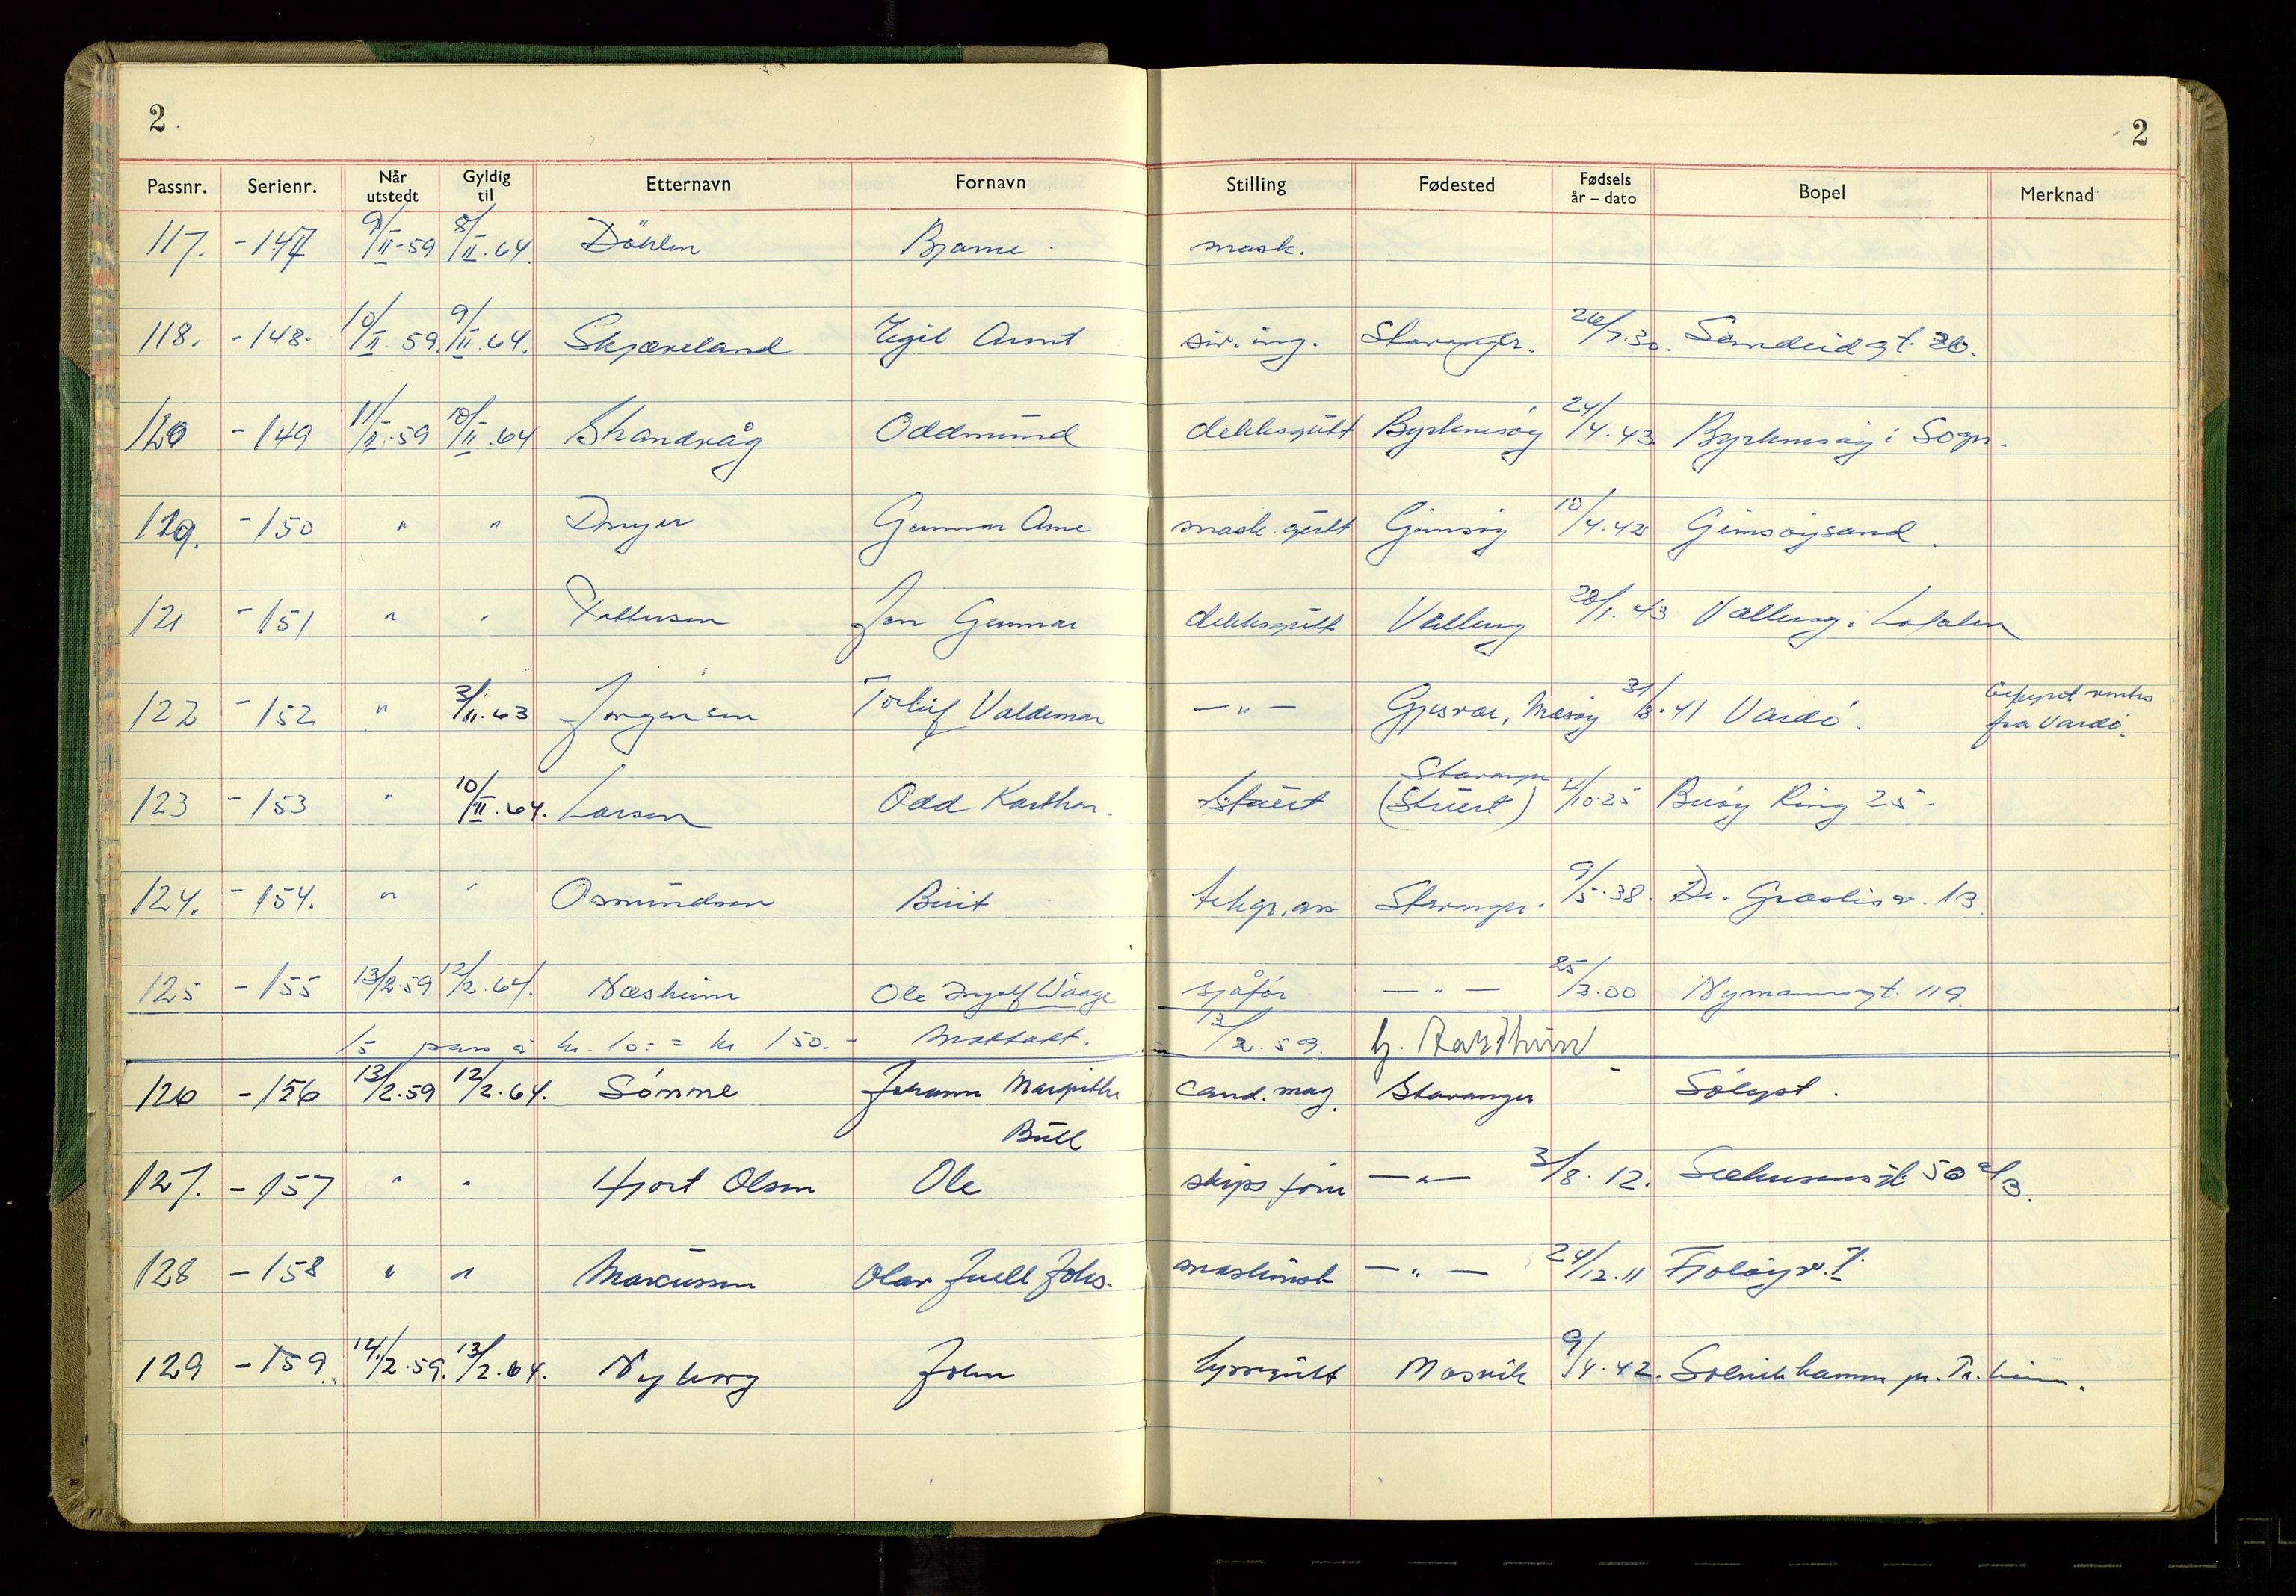 2.
2
Passnr. Serienr. Når utstedt Gyldig til Etternavn Fornavn Stilling Fødested Fødsels år – dato Bopel Merknad
117. -147 9/II-59 8/II.64. Döhlen Bjarne mask.
118. -148- 10/II.59. 9/II.64. Skjæveland Egil Arnt siv.ing. Stavanger. 26/7.30. Sandeidgt. 26.
120 -149 11/II.59 10/II.64 Strandvåg Oddmund dekksgutt Byrknesøy 24/4.43 Byrknesøy i Sogn.
119. -150 " " Dreyer Gunnar Arne mask.gutt Gimsøy 10/4.42 Gimsøysand.
121 -151 " " Pettersen Jan Gunnar dekksgutt 28/1.43 i Lofoten
122 -152 " 3/II.63 Jørgensen Torleif Valdemar —"— Gjesvær, Måsøy 31/8.41 Vardö. Gebyret ventes
fra Vardö.
123 -153 " 10/II.64. Larsen Odd Karthon. Stuert Stavanger
(Stuert) 4/10.25 Buøy Ring 25.
124. -154. " " Osmundsen Birit telegr.ass Stavanger. 9/5.38. Dr. v. 13
125 -155 13/2.59 12/2.64. Næsheim Ole Ingolf Waage sjåfør —"— 25/3.00 Nymannsgt. 119.
15 pass à kr. 10:= kr 150.- Mottatt. 13/2.59.
126 -156 13/2.59 12/2.64. Sömme Johanne Margrethe cand.mag. Stavanger Sólyst.
Bull
127. -157 " " Hjort Olsen Ole skipsfører —"— 3/8.12. Seehusensgt. 50
128 -158 " " Marcussen Olav Juell Johs. maskinist —"— 24/12.11 Fjoløyv. 7.
129 -159. 14/2.59. 13/2.64. Nyborg John byssgutt Mosvik 9/4.42. pr. Tr.heim.